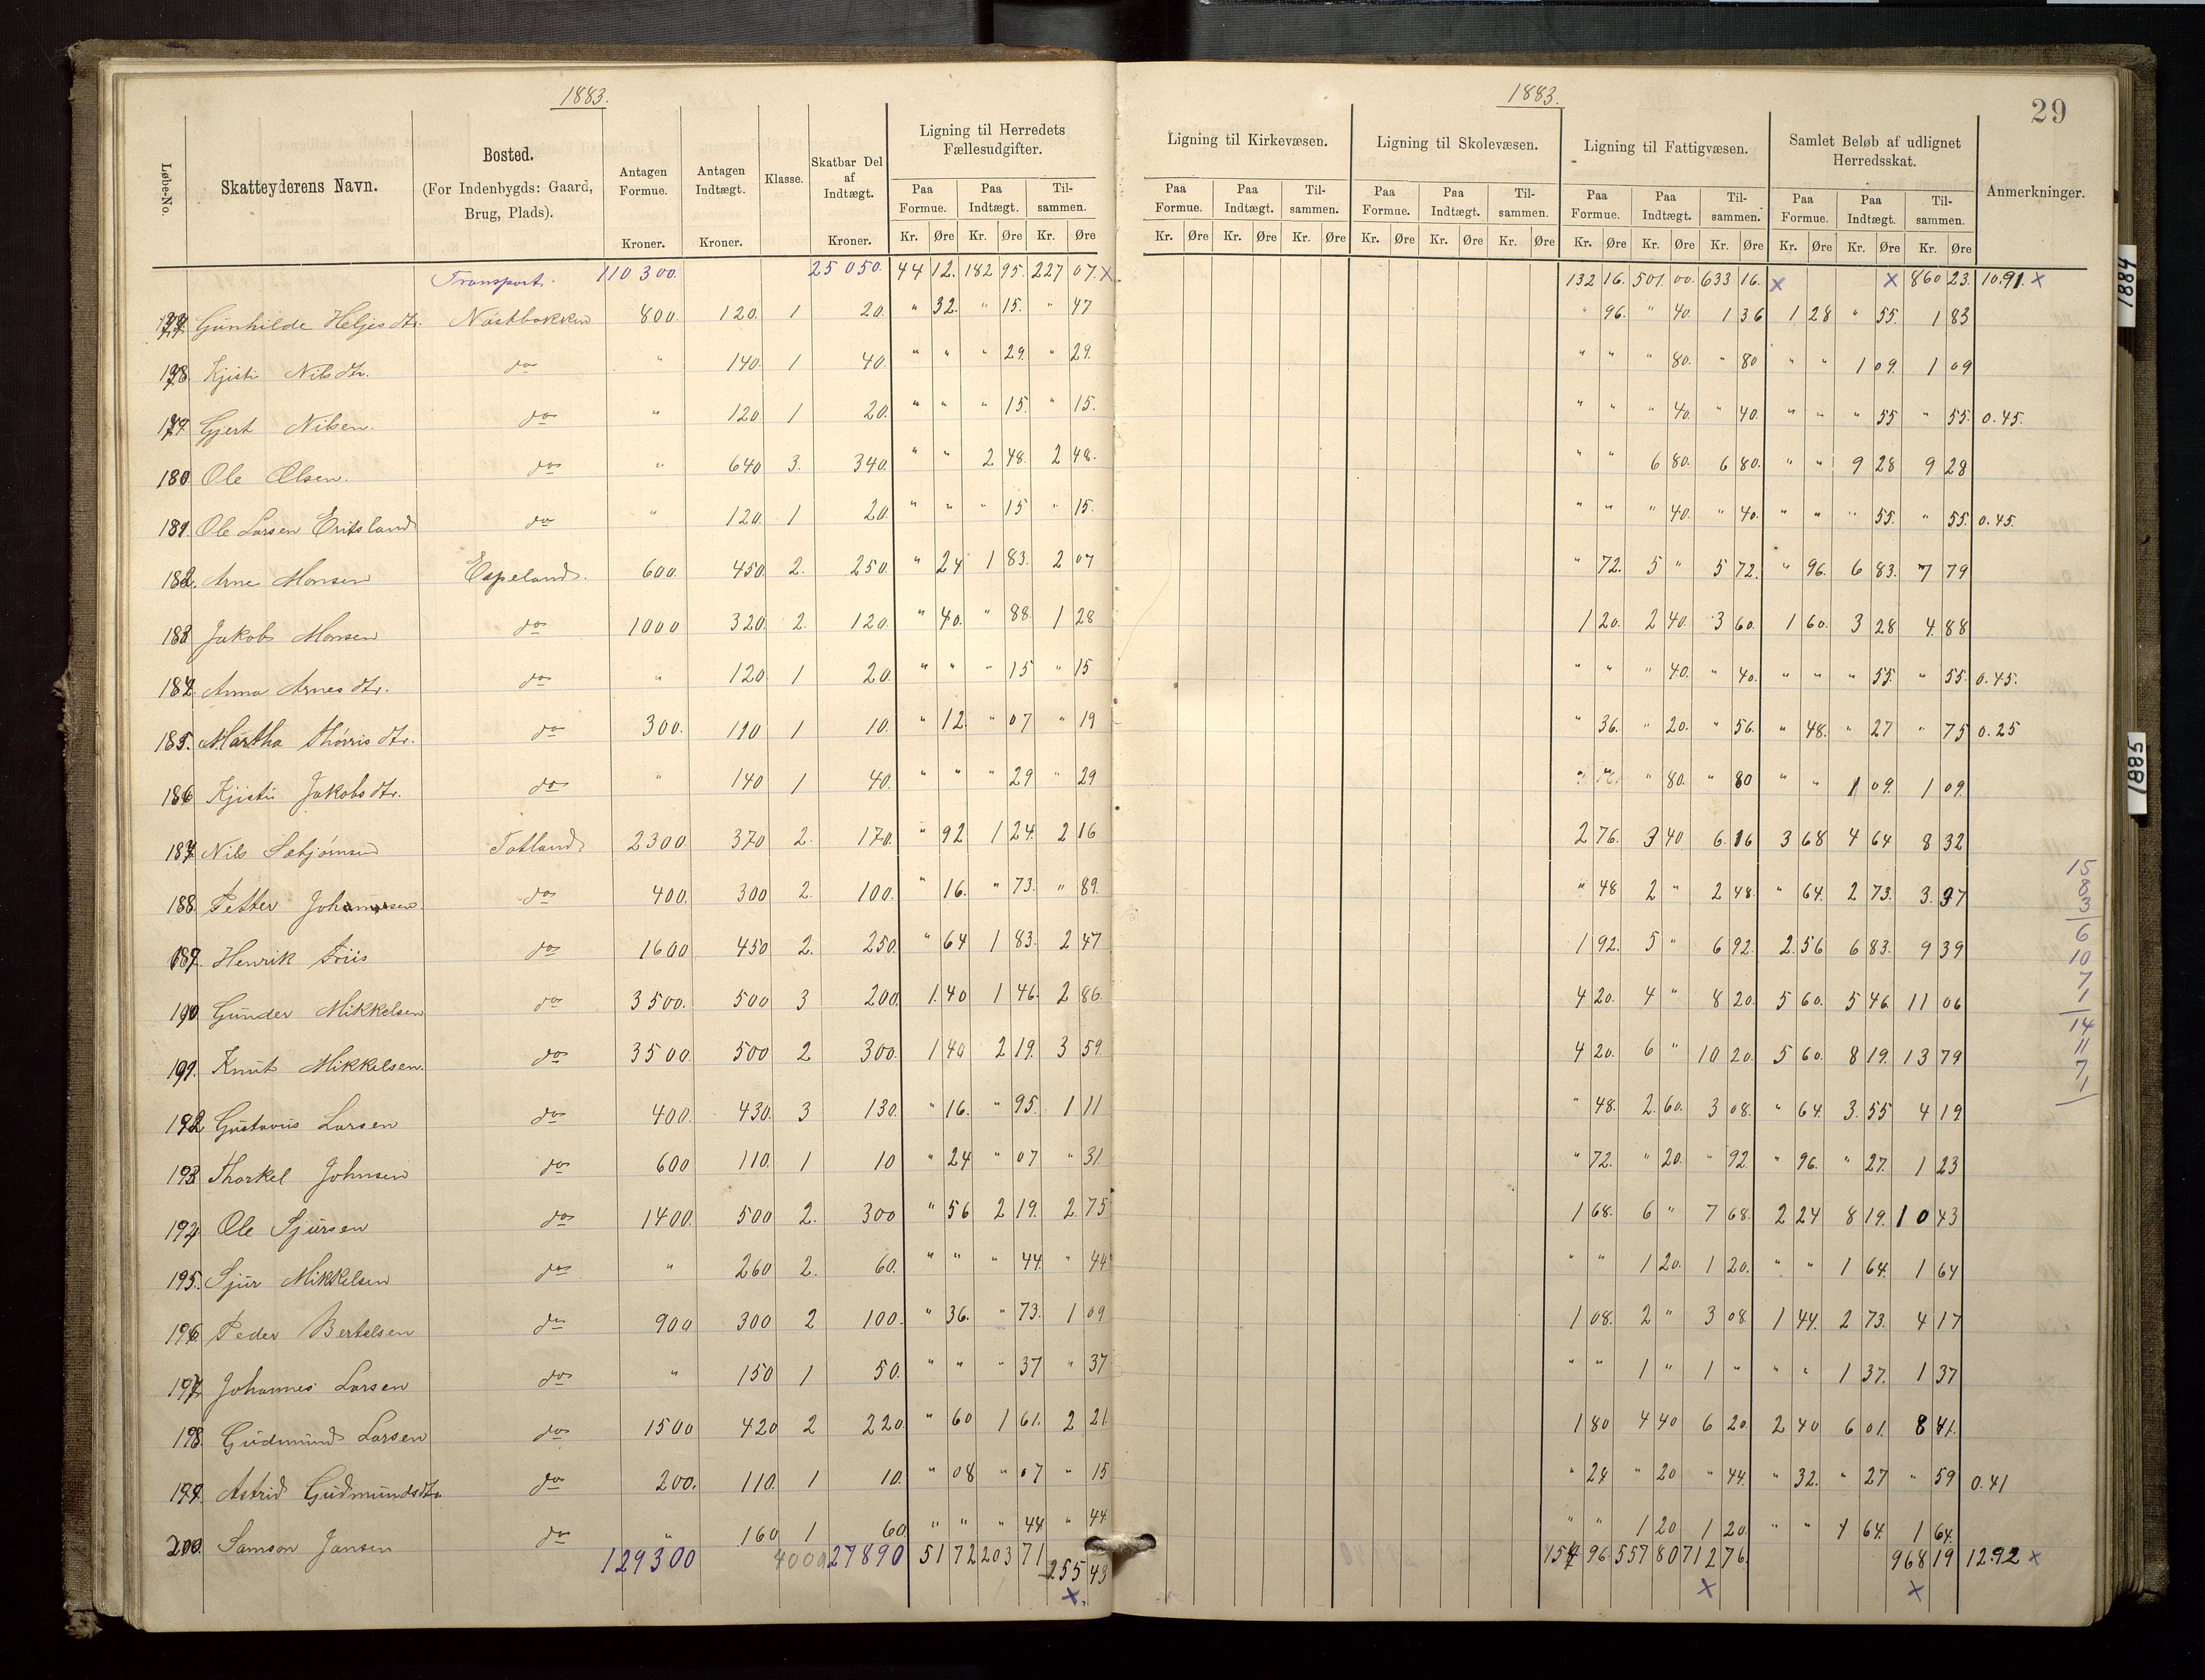 1883.
1883.
29
Løbe-No. Skatteyderens Navn. Bosted. (For Indenbygds: Gaard, Brug, Plads). Antagen Formue. Kroner. Antagen Indtægt. Kroner. Klasse. Skatbar Del af Indtægt. Kroner. Ligning til Herredets Fællesudgifter. Paa Formue. Paa Indtægt. Tilsammen. Kr. Øre Kr. Øre Kr. Øre
Ligning til Kirkevæsen. Paa Formue. Paa Indtægt. Tilsammen. Kr. Øre Kr. Øre Kr. Øre Ligning til Skolevæsen. Paa Formue. Paa Indtægt. Tilsammen. Kr. Øre Kr. Øre Kr. Øre Ligning til Fattigvæsen. Paa Formue. Paa Indtægt. Tilsammen. Kr. Øre Kr. Øre Kr. Øre Samlet Beløb af udlignet Herredsskat. Paa Formue. Paa Indtægt. Tilsammen. Kr. Øre Kr. Øre Kr. Øre Anmerkninger.
Transport. 110300. 25050. 44 12. 182 95. 227 07. x 132 16. 501. 00. 633 16. x x 860 23. 10.91. x
177. Gunhilde Heljesdtr. Nastbakken 800. 120. 1 20. " 32. " 15. " 47 " 96. " 40. 1 36 1 28 " 55. 1 83
178. Kjisti Nilsdtr. do " 140. 1 40. " " " 29. " 29. " " " 80. " 80 " " 1 09. 1 09
179. Gjert Nilsen. do " 120. 1 20. " " " 15. " 15. " " " 40. " 40. " " " 55 " 55. 0.45.
180 Ole Olsen. do " 640 3. 340. " " 2 48. 2 48. " " 6 80. 6 80. " " 9 28 9 28
181. Ole Larsen Eritsland do " 120. 1 20. " " " 15 " 15. " " " 40. " 40. " " " 55. " 55. 0.45.
182. Arne Monsen Espeland. 600. 450. 2. 250. " 24 1 83. 2 07 " 72. 5 " 5 72. " 96. 6 83. 7 79
183 Jakob Monsen do 1000 320. 2. 120. " 40. " 88. 1 28 1 20. 2 40. 3 60. 1 60. 3 28 4. 88
184. Anna Arnesdtr. do " 120. 1 20. " " " 15 " 15 " " " 40. " 40. " " " 55. " 55. 0.45.
185. Martha Thorrisdtr. do 300. 110 1 10. " 12. " 07 " 19 " 36. " 20. " 56. " 48. " 27 " 75 0.25
186 Kjisti Jakobsdtr. do " 140 1 40. " " " 29 " 29 " " " 80. " 80 " " 1 09. 1 09.
187 Nils Sæbjørnsen Totland 2300. 370 2. 170. " 92 1 24. 2 16 2 76. 3 40 6. 16 3 68 4 64 8 32
188. Petter Johannesen do 400. 300 2. 100. " 16. " 73. " 89. " 48 2 " 2 48. " 64. 2 73. 3. 37
189. Henrik Friis do 1600 450 2. 250. " 64 1 83. 2 47 1 92. 5 " 6 92. 2. 56 6 83. 9 39
190. Gunder Mikkelsen do 3500. 500 3 200. 1. 40 1 46. 2 86. 4 20. 4 " 8 20. 5 60. 5 46. 11 06
191. Knut Mikkelsen. do 3500. 500 2 300. 1 40 2 19. 3 59. 4 20. 6 " 10 20. 5 60. 8 19. 13 79
192 Gustavus Larsen do 400. 430. 3 130. " 16. " 95. 1 11 " 48. 2. 60. 3 08. " 64. 3. 55 4 19
193 Thorkel Johnsen do 600 110. 1 10 " 24 " 07 " 31. " 72. " 20. " 92. " 96. " 27. 1 23
194 Ole Sjursen do 1400. 500 2. 300 " 56 2 19. 2. 75 1 68. 6 " 7 68. 2 24 8 19. 10 43
195. Sjur Mikkelsen do " 260 2. 60. " " " 44. " 44 " " 1 20. 1 20. " " 1 64. 1 64
196. Peder Bertelsen do 900 300 2 100. " 36. " 73. 1 09 1 08. 2 " 3 08. 1 44. 2 73. 4 17
197. Johannes Larsen do " 150 1 50. " " " 37 " 37 " " 1 " 1 " " " 1 37. 1 37
198. Gudmund Larsen do 1500 420 2 220. " 60 1 61. 2 21. 1 80 4 40 6 20. 2 40 6 01. 8 41.
199. Astrid Gudmundsdtr. do 200. 110. 1 10. " 08 " 07 " 15 " 24 " 20 " 44. " 32. " 27 " 59 0.41
200. Samson Jansen do " 160 1 60. " " " 44 " 44 " " 1 20 1 20. " " 1 64. 1 64.
129300 4000 27890 51 72 203 71 255 43 154 96 557 80 712 76. 968 19 12.92 x
x. x x
15
8
3
6
10
7
1
14
11
7
1
1884
1885